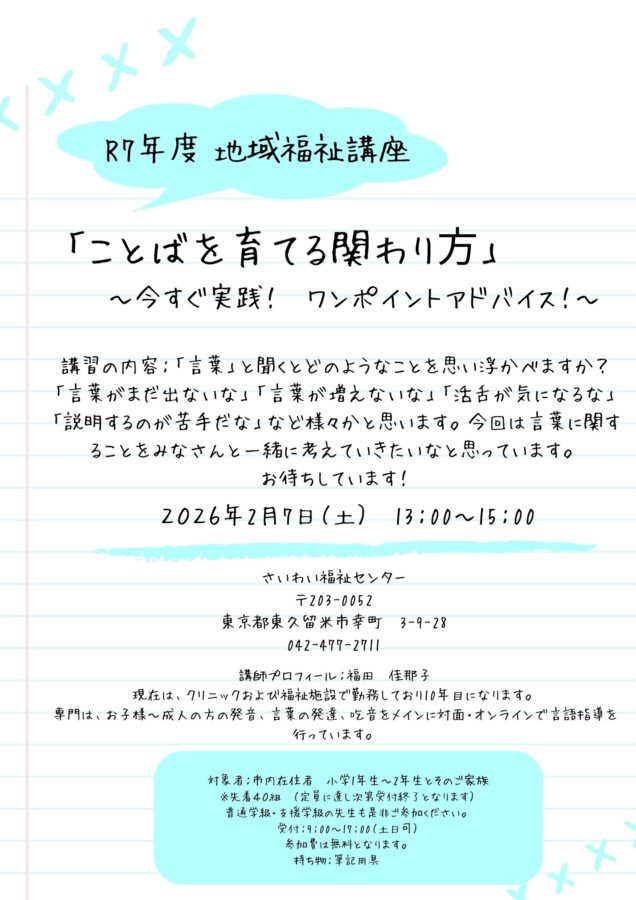 R7年度 地域福祉講座
「ことばを育てる関わり方」
～今すぐ実践！ ワンポイントアドバイス！～
講習の内容；「言葉」と聞くとどのようなことを思い浮かべますか？
「言葉がまだ出ないな」「言葉が増えないな」「活舌が気になるな」
「説明するのが苦手だな」など様々かと思います。今回は言葉に関す
ることをみなさんと一緒に考えていきたいなと思っています。
お待ちしています！
2026年2月7日（土） 13：00～15：00
さいわい福祉センター
〒203-0052
東京都東久留米市幸町 3-9-28
042-477-2711
講師プロフィール；福田 佳那子
現在は、クリニックおよび福祉施設で勤務しており10年目になります。
専門は、お子様～成人の方の発音、言葉の発達、吃音をメインに対面・オンラインで言語指導を
行っています。
対象者；市内在住者 小学1年生～2年生とそのご家族
※先着40組 （定員に達し次第受付終了となります）
普通学級・支援学級の先生も是非ご参加ください。
受付；9：00～17：00（土日可）
参加費は無料となります。
持ち物；筆記用具